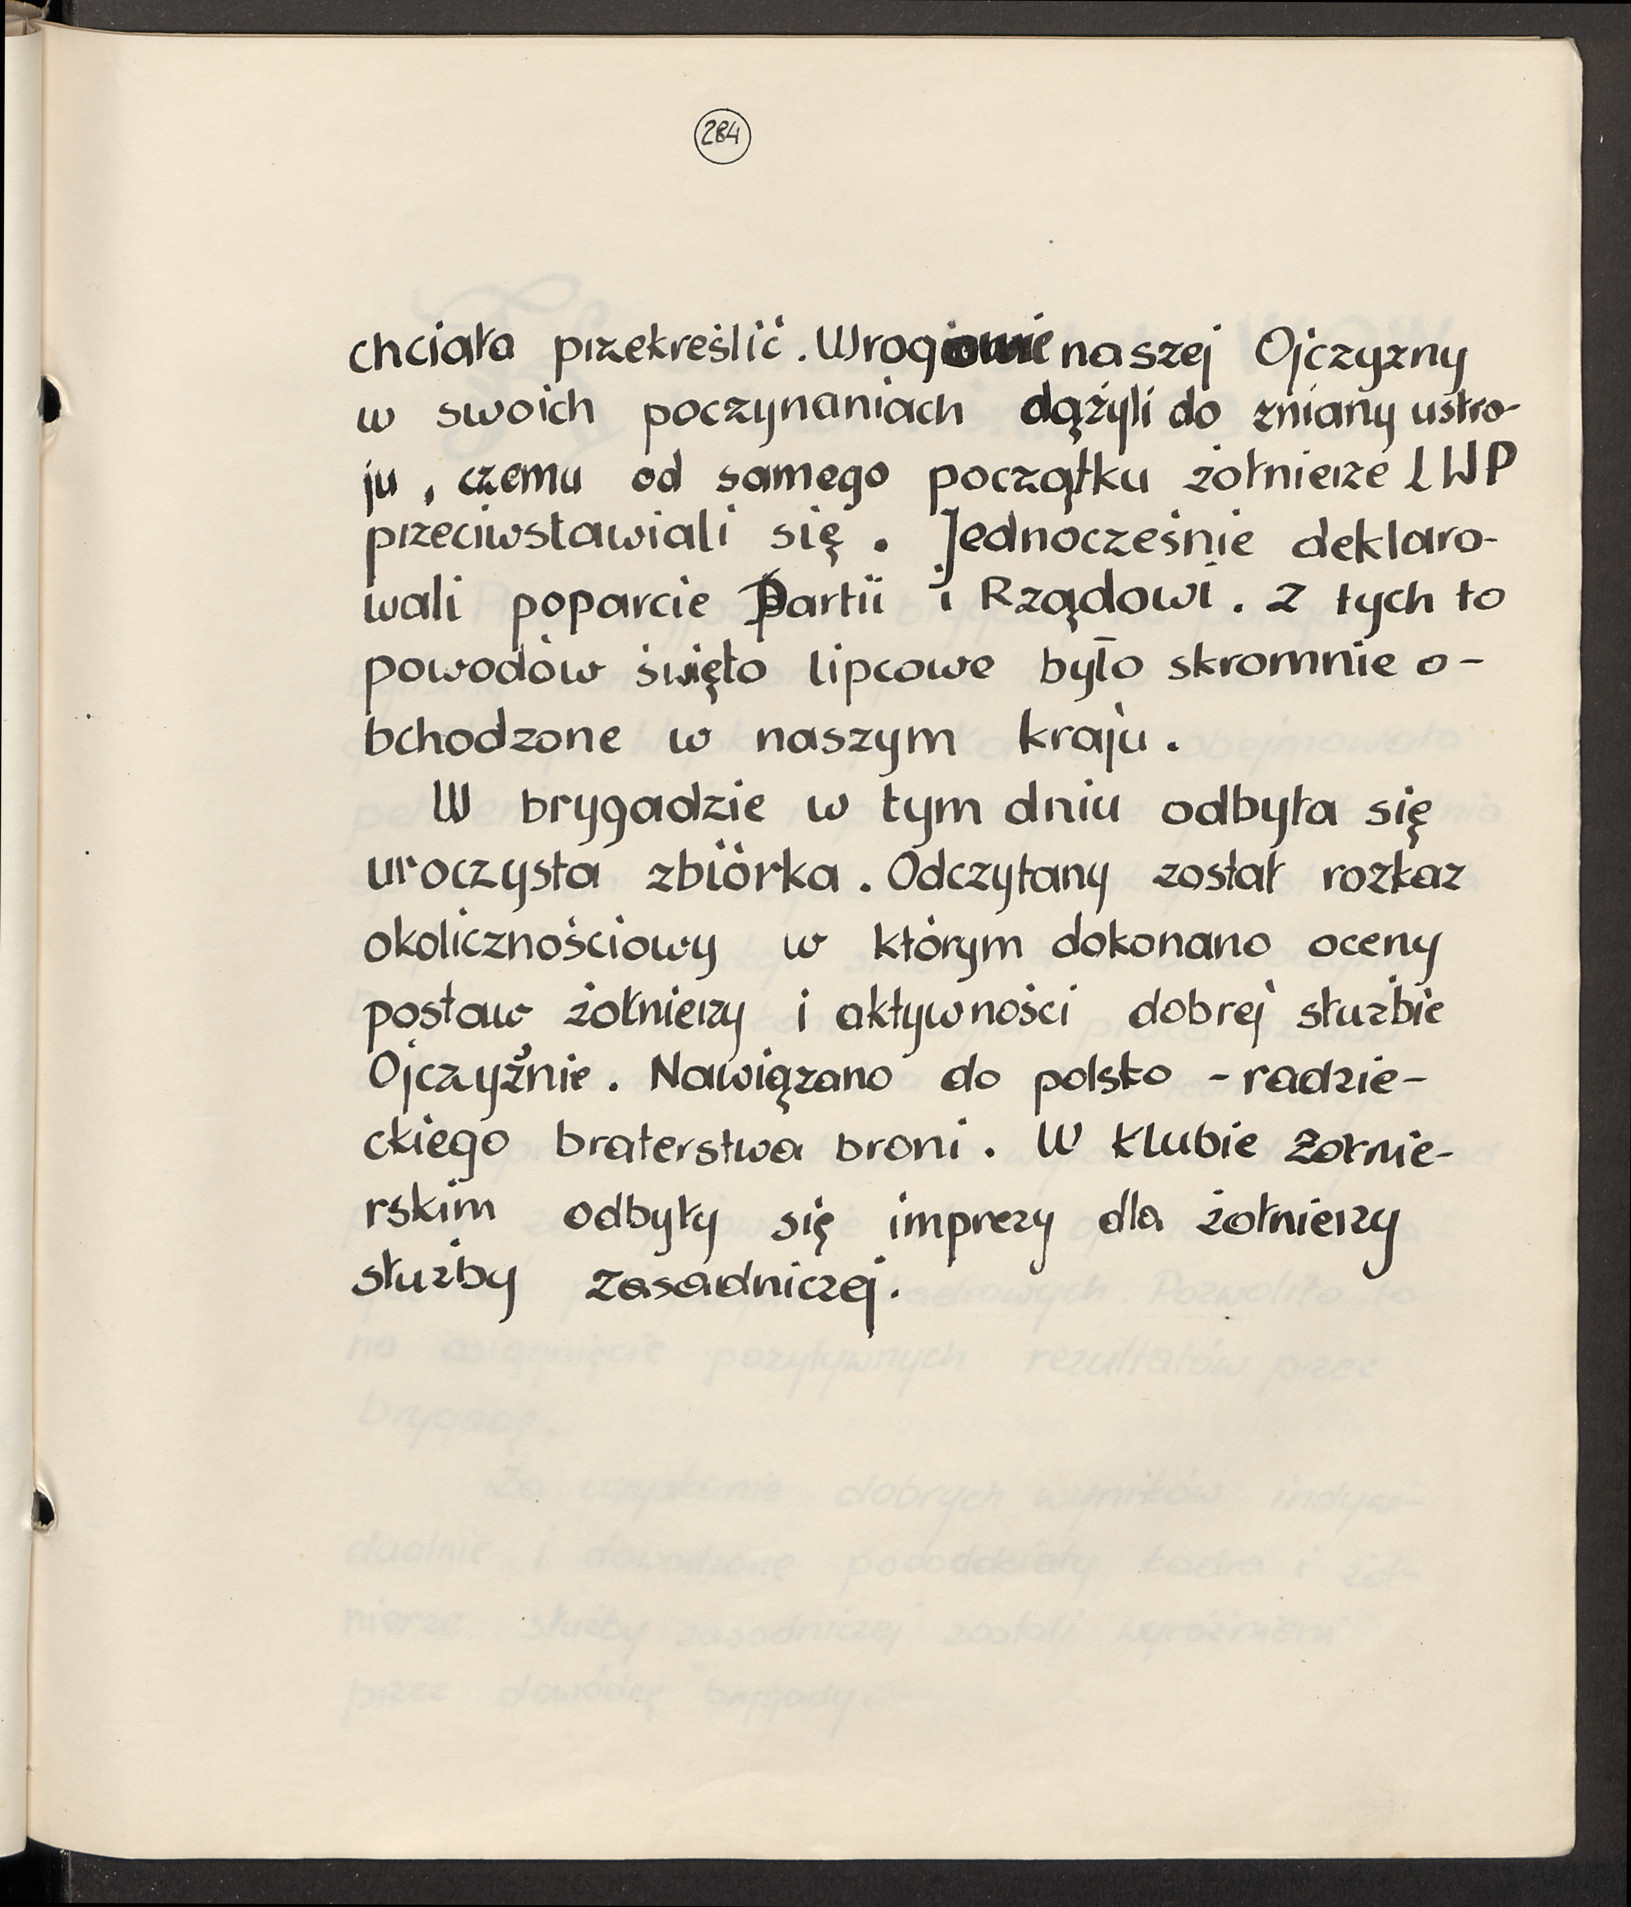 284
chciała przekreślić. Wrogowie naszej Ojczyzny
w swoich poczynaniach dążyli do zmiany ustro-
ju, czemu od samego początku żołnierze LWP
przeciwstawiali się. Jednocześnie deklaro-
wali poparcie Partii i Rządowi. Z tych to
powodów święto lipcowe było skromnie o-
bchodzone w naszym kraju.
W brygadzie w tym dniu odbyła się
uroczysta zbiórka. Odczytany został rozkaz
okolicznościowy w którym dokonano oceny
postaw żołnierzy i aktywności dobrej służbie
Ojczyźnie. Nawiązano do polsko-radzie-
ckiego braterstwa broni. W klubie Żołnie-
rskim odbyły się imprezy dla żołnierzy
służby zasadniczej.